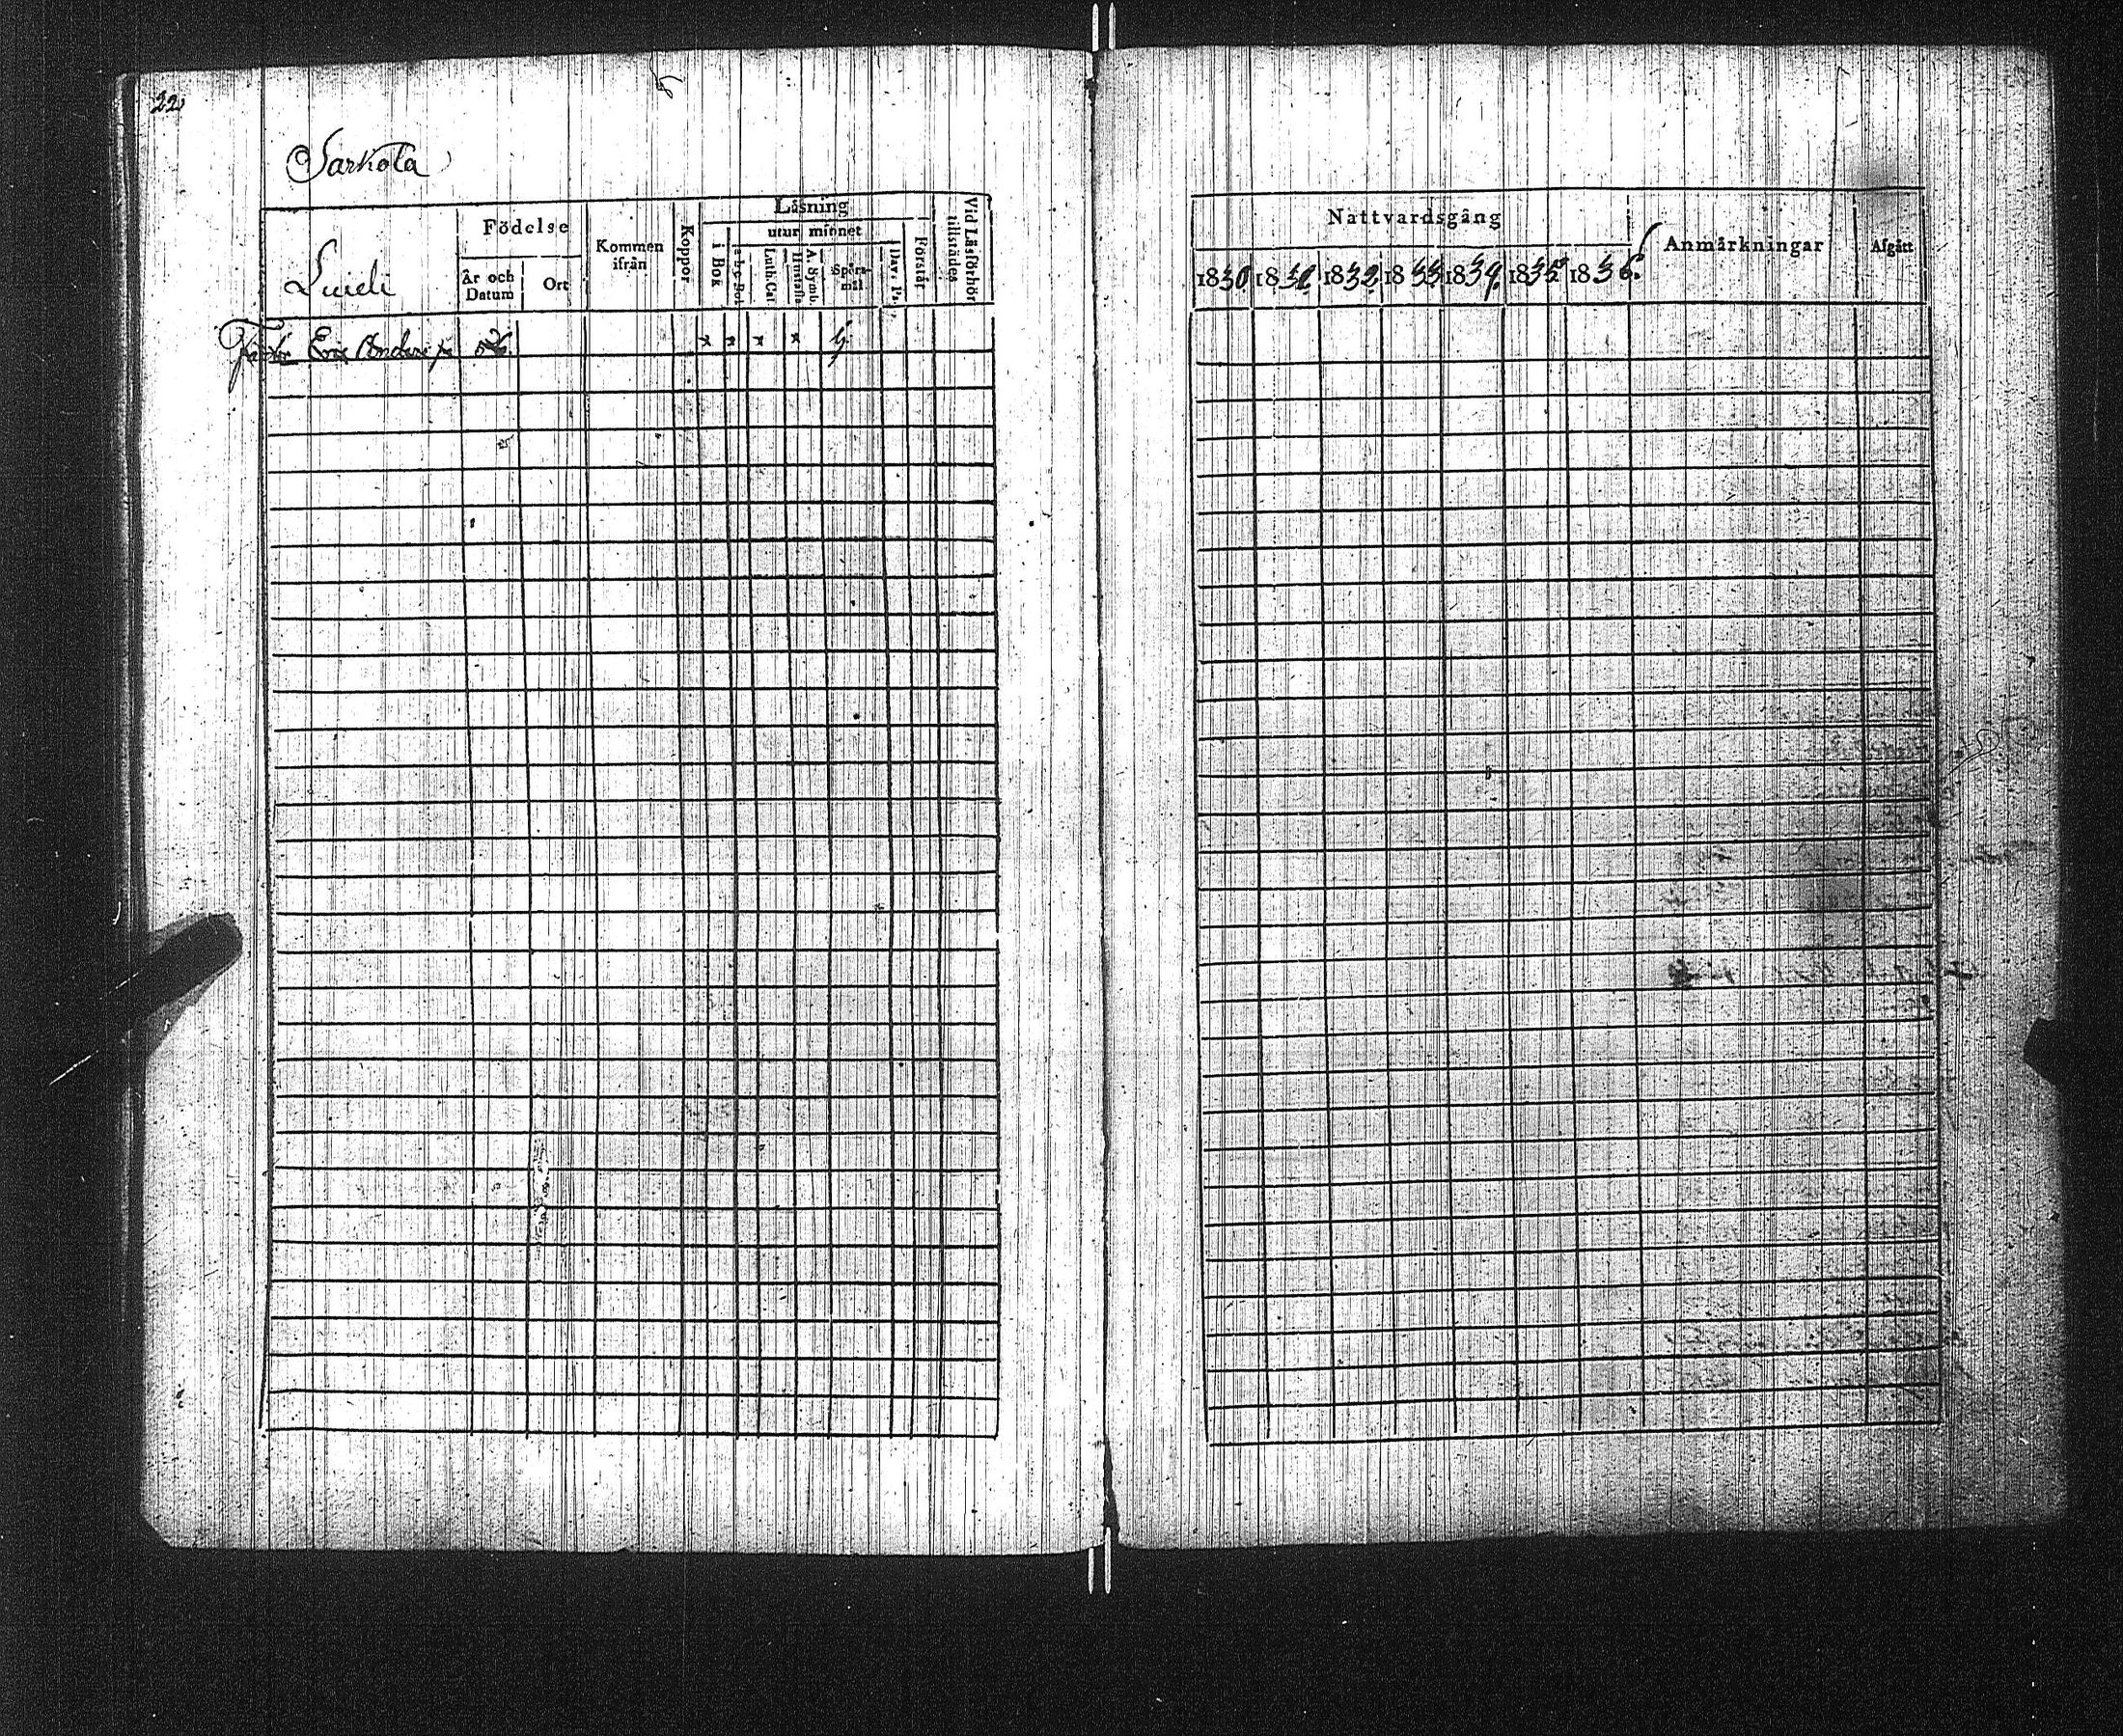 22
Sarkola
Luieli
Födelse
År och Datum
Ort
Kommen ifrån
Koppor
Läsning
utur minnet
i Bok
a b c Bok
Luth. Cat.
Hustafla
A. Symb.
Spörsmål
Dav. Ps.
Förstår
Vid Läsförhör tillstädes
Eric Anders
x x x x
Nattvardsgång
1830 1831. 1832. 1833 1834. 1835 1836.
Anmärkningar
Afgått